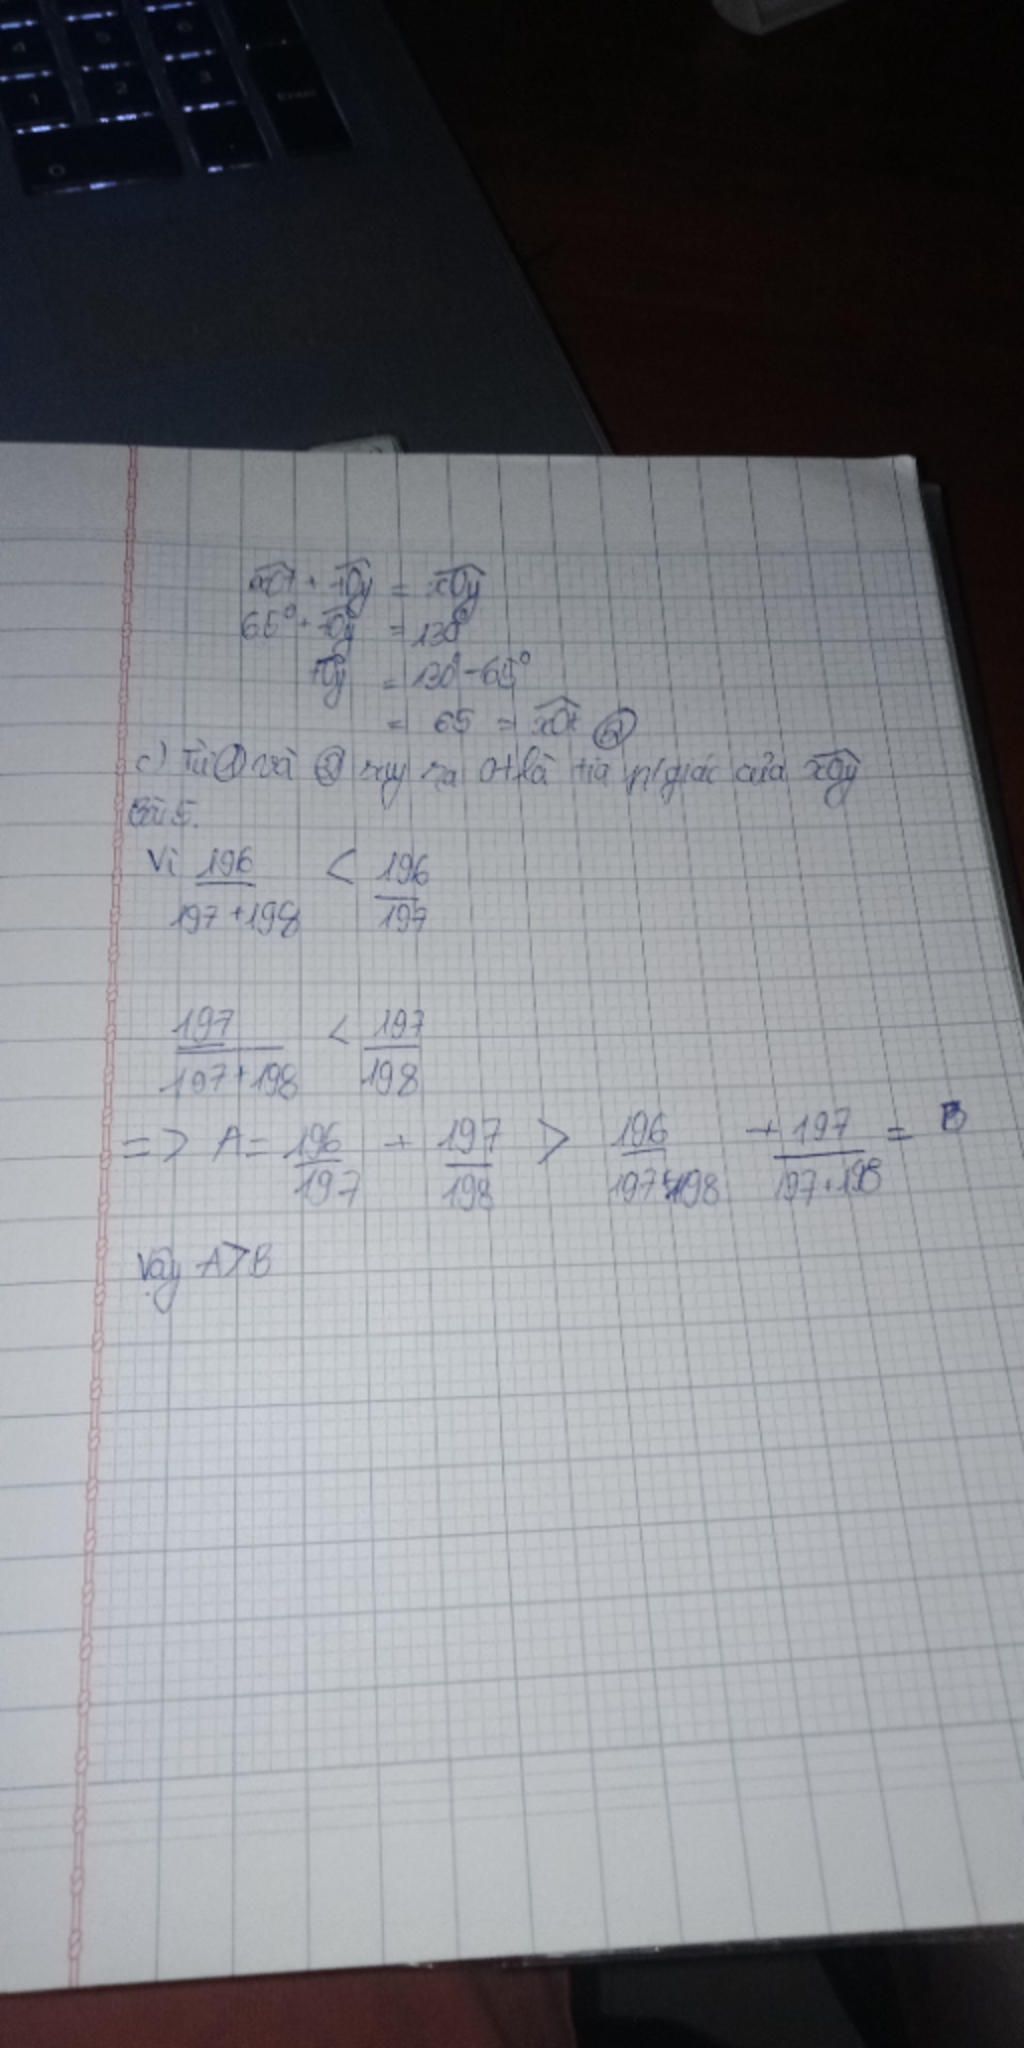 4 5 6
1 2 3 Enter
0 .
xOt + tOy = xOy
65° + tOy = 130°
tOy = 130° - 65°
= 65 = xOt ②
c) Từ ① và ② suy ra Ot là tia p/giác của xOy
Bài 5.
Vì 196/197+198 < 196/197
197/197+198 < 197/198
=> A = 196/197 + 197/198 > 196/197+198 + 197/197+198 = B
Vậy A > B